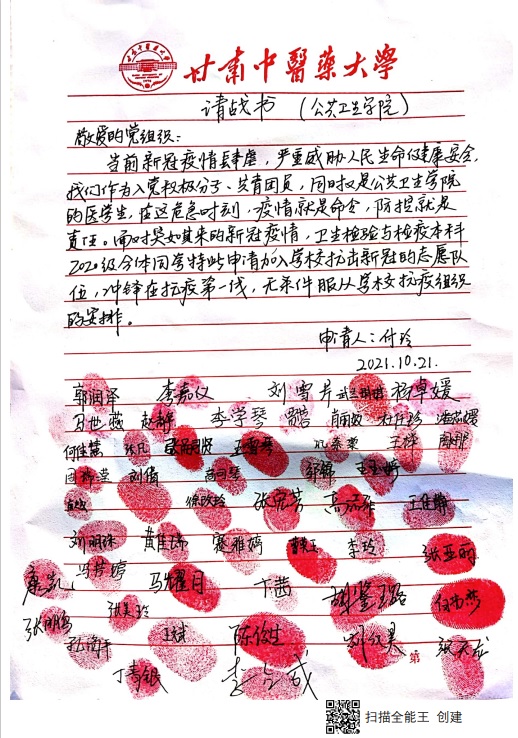 甘肃中医药大学
请战书 (公共卫生学院)
敬爱的党组织:
当前新冠疫情肆虐,严重威胁人民生命健康安全,
我们作为入党积极分子、共青团员,同时又是公共卫生学院
的医学生,在这危急时刻,疫情就是命令,防控就是
责任。面对突如其来的新冠疫情,卫生检验与检疫本科
2020级全体同学特此申请加入学校抗击新冠的志愿队
伍,冲锋在抗疫第一线,无条件服从学校抗疫组织
的安排。
申请人:付玲
2021.10.21.
郭润泽 李嘉仪 刘雪卉 杨卓媛
马世薇 赵静 李学琴
何佳慧 张凡 王智琴 王祥
刘倩 邹锦 王玉婷
徐玫玲 张宛芳 王佳静
刘明沐 黄佳瑞 蹇雅婷 李玲 张亚丽
康凯 冯梦婷 马耀月 卞茜 胡鉴璐
张鹏 张美玲
孙海平 王斌 陈俊生 刘红昊 张天龙
丁青银 李占成
第
扫描全能王 创建